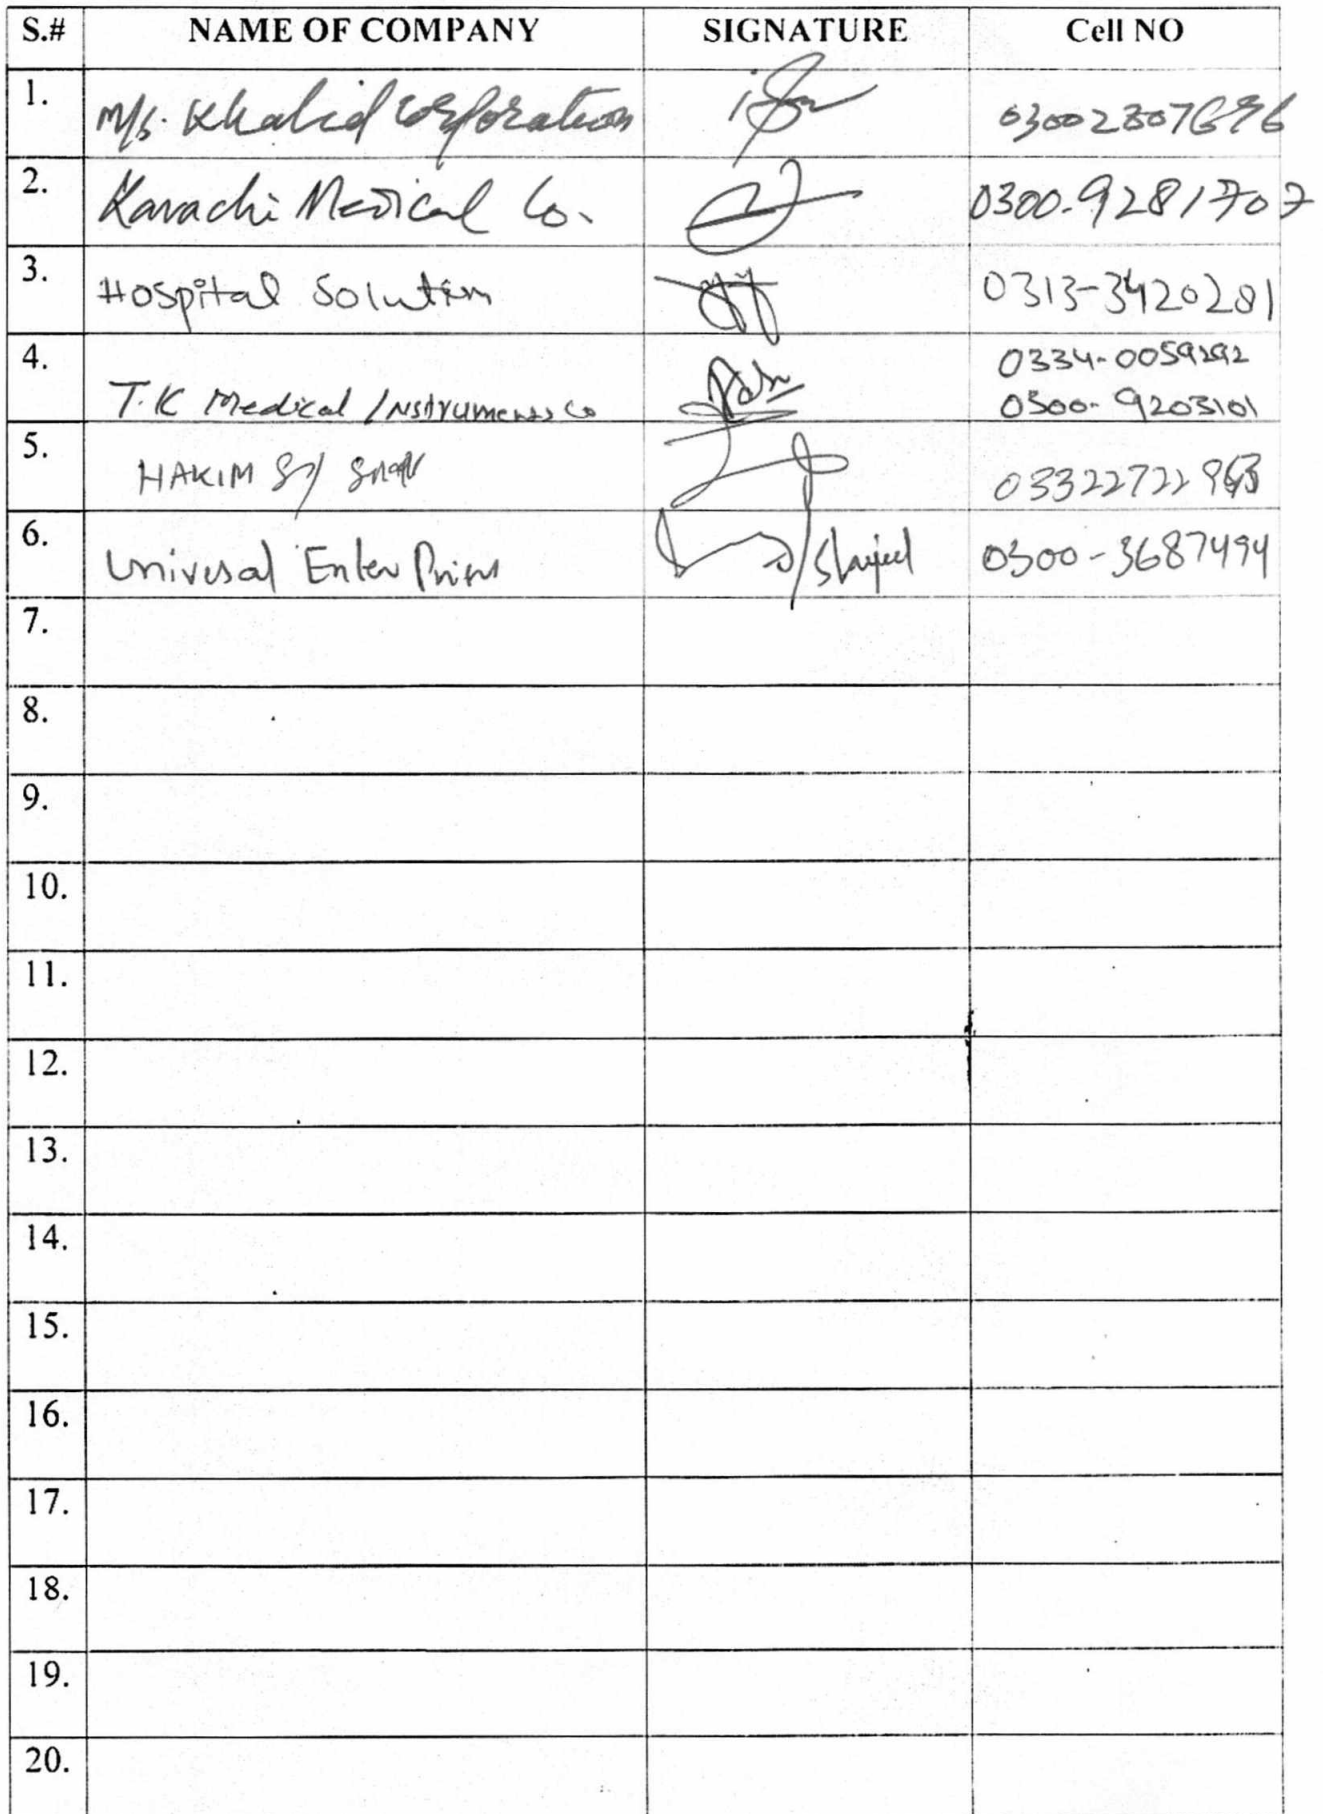 S.# NAME OF COMPANY SIGNATURE Cell NO
1. M/s. Khalid Corporation
2. Karachi Medical Co. 0300-9281707
3. Hospital Solution 0313-3420281
4. T.K Medical Instruments Co 0334-0059292
0300-9203101
5. HAKIM
6. Univesal Enter Prises Sharjeel 0300-3687494
7.
8.
9.
10.
11.
12.
13.
14.
15.
16.
17.
18.
19.
20.